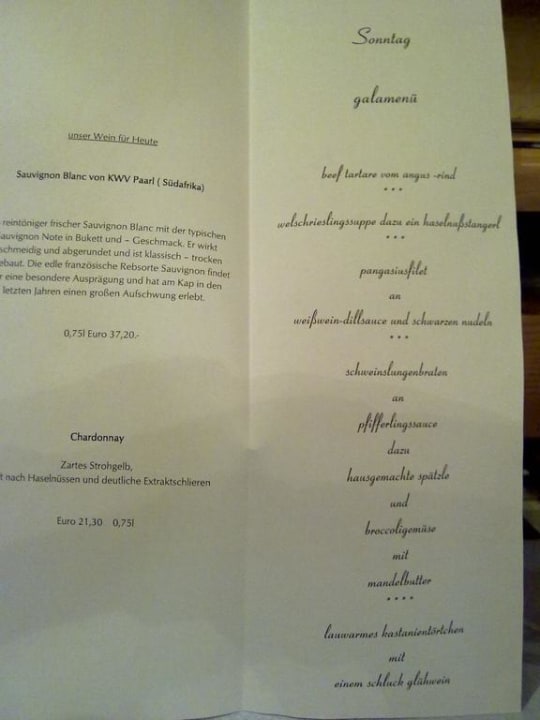 unser Wein für Heute
Sauvignon Blanc von KWV Paarl ( Südafrika)
reintöniger frischer Sauvignon Blanc mit der typischen
Sauvignon Note in Bukett und – Geschmack. Er wirkt
schmeidig und abgerundet und ist klassisch – trocken
ebaut. Die edle französische Rebsorte Sauvignon findet
r eine besondere Ausprägung und hat am Kap in den
letzten Jahren einen großen Aufschwung erlebt.
0,75l Euro 37,20.-
Chardonnay
Zartes Strohgelb,
t nach Haselnüssen und deutliche Extraktschlieren
Euro 21,30 0,75l
Sonntag
galamenü
beef tartare vom angus -rind
***
welschrieslingssuppe dazu ein haselnußstangerl
***
pangasiusfilet
an
weißwein-dillsauce und schwarzen nudeln
***
schweinslungenbraten
an
pfifferlingssauce
dazu
hausgemachte spätzle
und
broccoligemüse
mit
mandelbutter
****
lauwarmes kastanientörtchen
mit
einem schluck glühwein